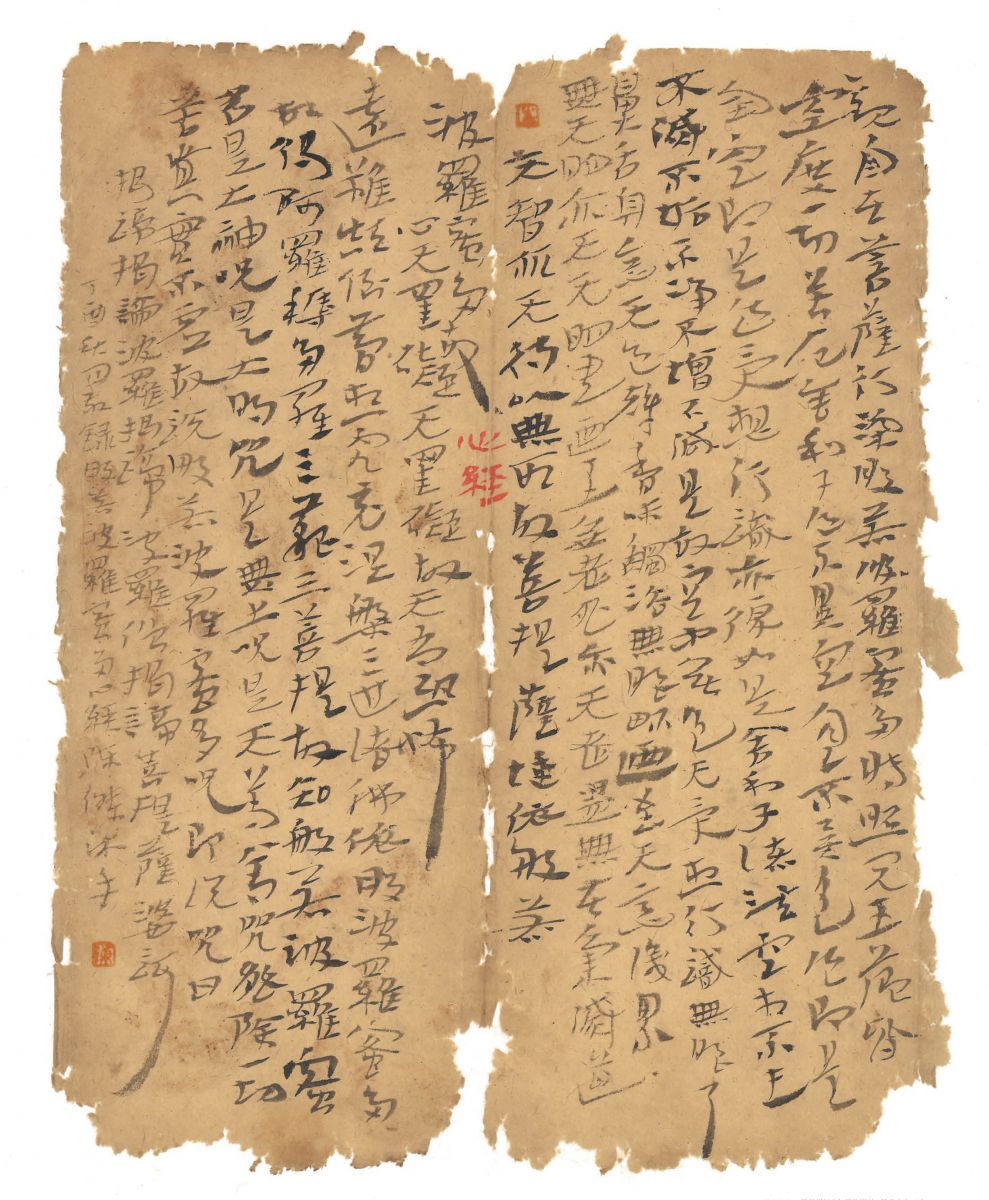 觀自在菩薩行深般若波羅蜜多時照見五蘊皆
空度一切苦厄舍利子色不異空空不異色色即是
空空即是色受想行識亦復如是舍利子諸法空相不生
不滅不垢不淨不增不減是故空中无色无受想行識無眼耳
鼻舌身意无色聲香味觸法無眼界乃至无意識界
無无明亦无无明盡乃至無老死亦无老死盡無苦集滅道
无智亦无得以無所故菩提薩埵依般若
心經
波羅蜜多故
心无罣礙无罣礙故无有恐怖
遠離顛倒夢想究竟涅槃三世諸佛依般波羅蜜多
故得阿羅耨多羅三藐三菩提故知般若波羅蜜
多是大神呪是大明咒是無上呪是无等等咒能除一切
苦真實不虛故說般若波羅蜜多呪即說呪曰
揭諦揭諦波羅揭諦波羅僧揭諦菩提薩婆訶
丁酉秋錄般若波羅蜜多心經陳傑沐手